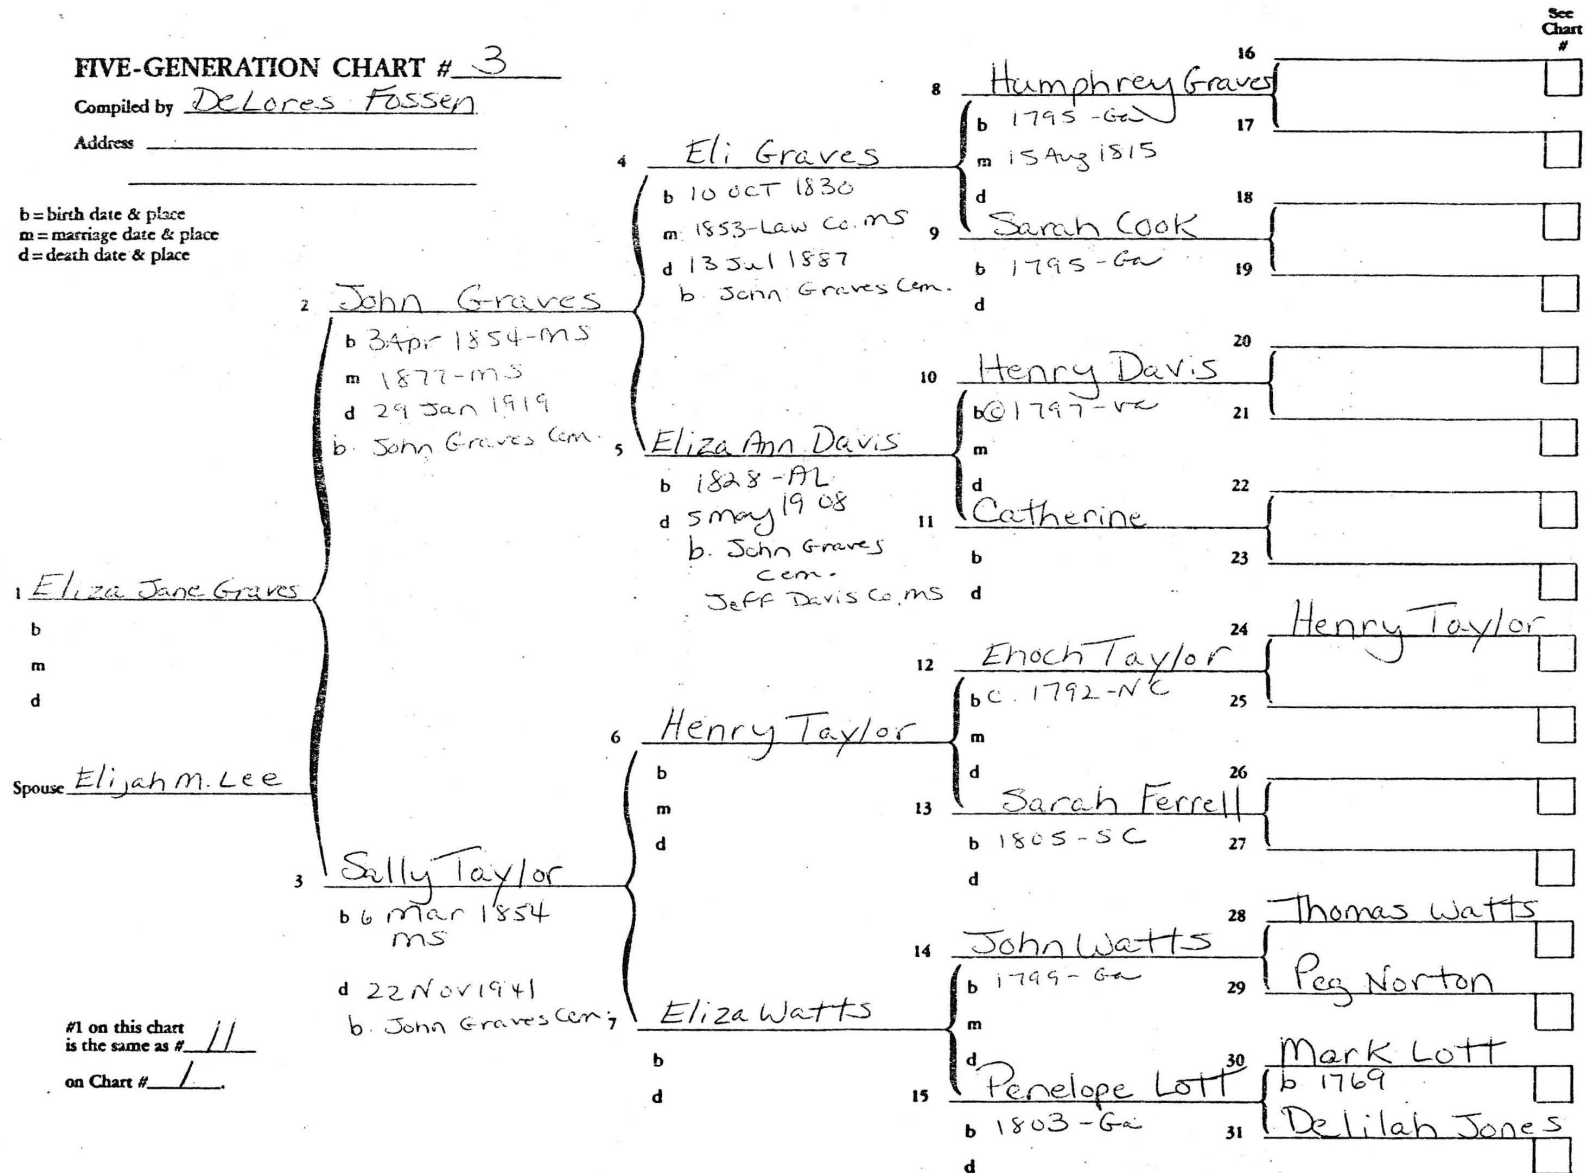 FIVE-GENERATION CHART # 3
Compiled by DeLores Fossen
Address
b = birth date & place
m = marriage date & place
d = death date & place
See
Chart
#
1 Eliza Jane Graves
b
m
d
Spouse Elijah M. Lee
#1 on this chart
is the same as # 11
on Chart # 1.
2 John Graves
b 3 Apr 1854-MS
m 1877-MS
d 29 Jan 1919
b. John Graves Cem.
3 Sally Taylor
b 6 Mar 1854
MS
d 22 Nov 1941
b. John Graves Cem.
4 Eli Graves
b 10 OCT 1830
m 1853-Law Co. MS
d 13 Jul 1887
b. John Graves Cem.
5 Eliza Ann Davis
b 1828-AL
d 5 May 1908
b. John Graves
Cem.
Jeff Davis Co, MS
6 Henry Taylor
b
m
d
7 Eliza Watts
b
d
8 Humphrey Graves
b 1795-Ga
m 15 Aug 1815
d
9 Sarah Cook
b 1795-Ga
d
10 Henry Davis
b © 1797-va
m
d
11 Catherine
b
d
12 Enoch Taylor
b c. 1792-NC
m
d
13 Sarah Ferrell
b 1805-SC
d
14 John Watts
b 1799-Ga
m
d
15 Penelope Lott
b 1803-Ga
d
16
17
18
19
20
21
22
23
24 Henry Taylor
25
26
27
28 Thomas Watts
29 Peg Norton
30 Mark Lott
b 1769
31 Delilah Jones